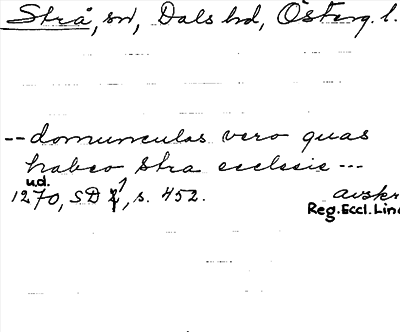 Strå, sn, Dals hd, Österg. l.
-- domunculas vero quas
habeo Stra ecclesie ---
u.d.
1270, SD 1, s. 452. avskr
Reg. Eccl. Linc